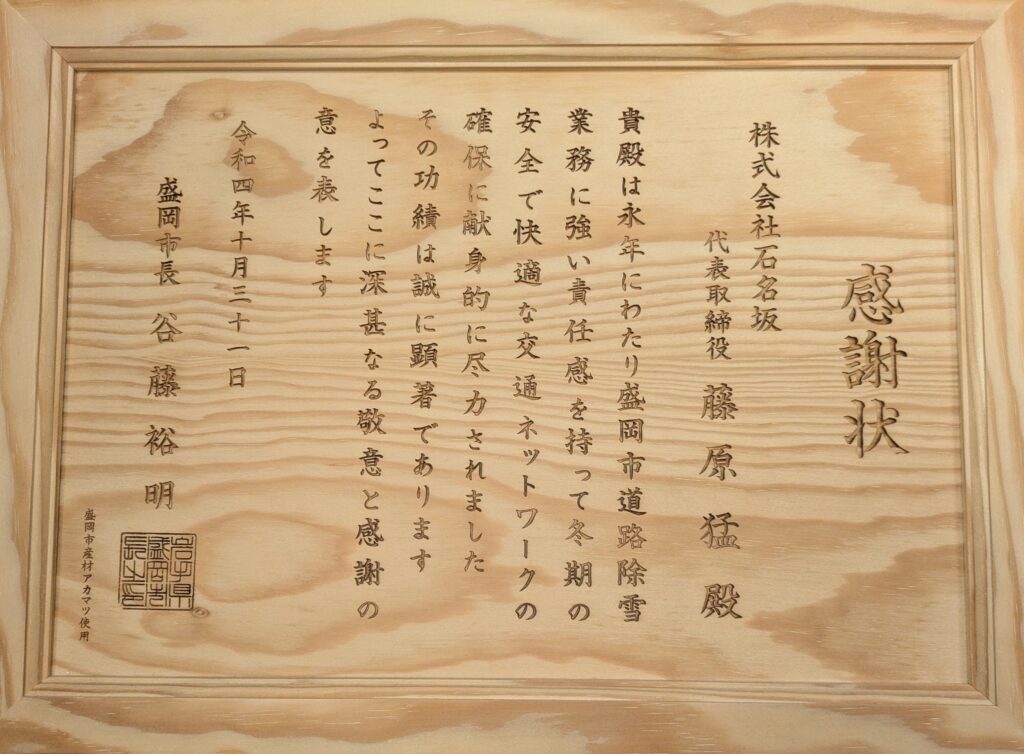 感謝状
株式会社石名坂
代表取締役 藤原猛殿
貴殿は永年にわたり盛岡市道路除雪
業務に強い責任感を持って冬期の
安全で快適な交通ネットワークの
確保に献身的に尽力されました
その功績は誠に顕著であります
よってここに深甚なる敬意と感謝の
意を表します
令和四年十月三十一日
盛岡市長 谷藤裕明
岩手県
盛岡市
長之印
盛岡市産材アカマツ使用